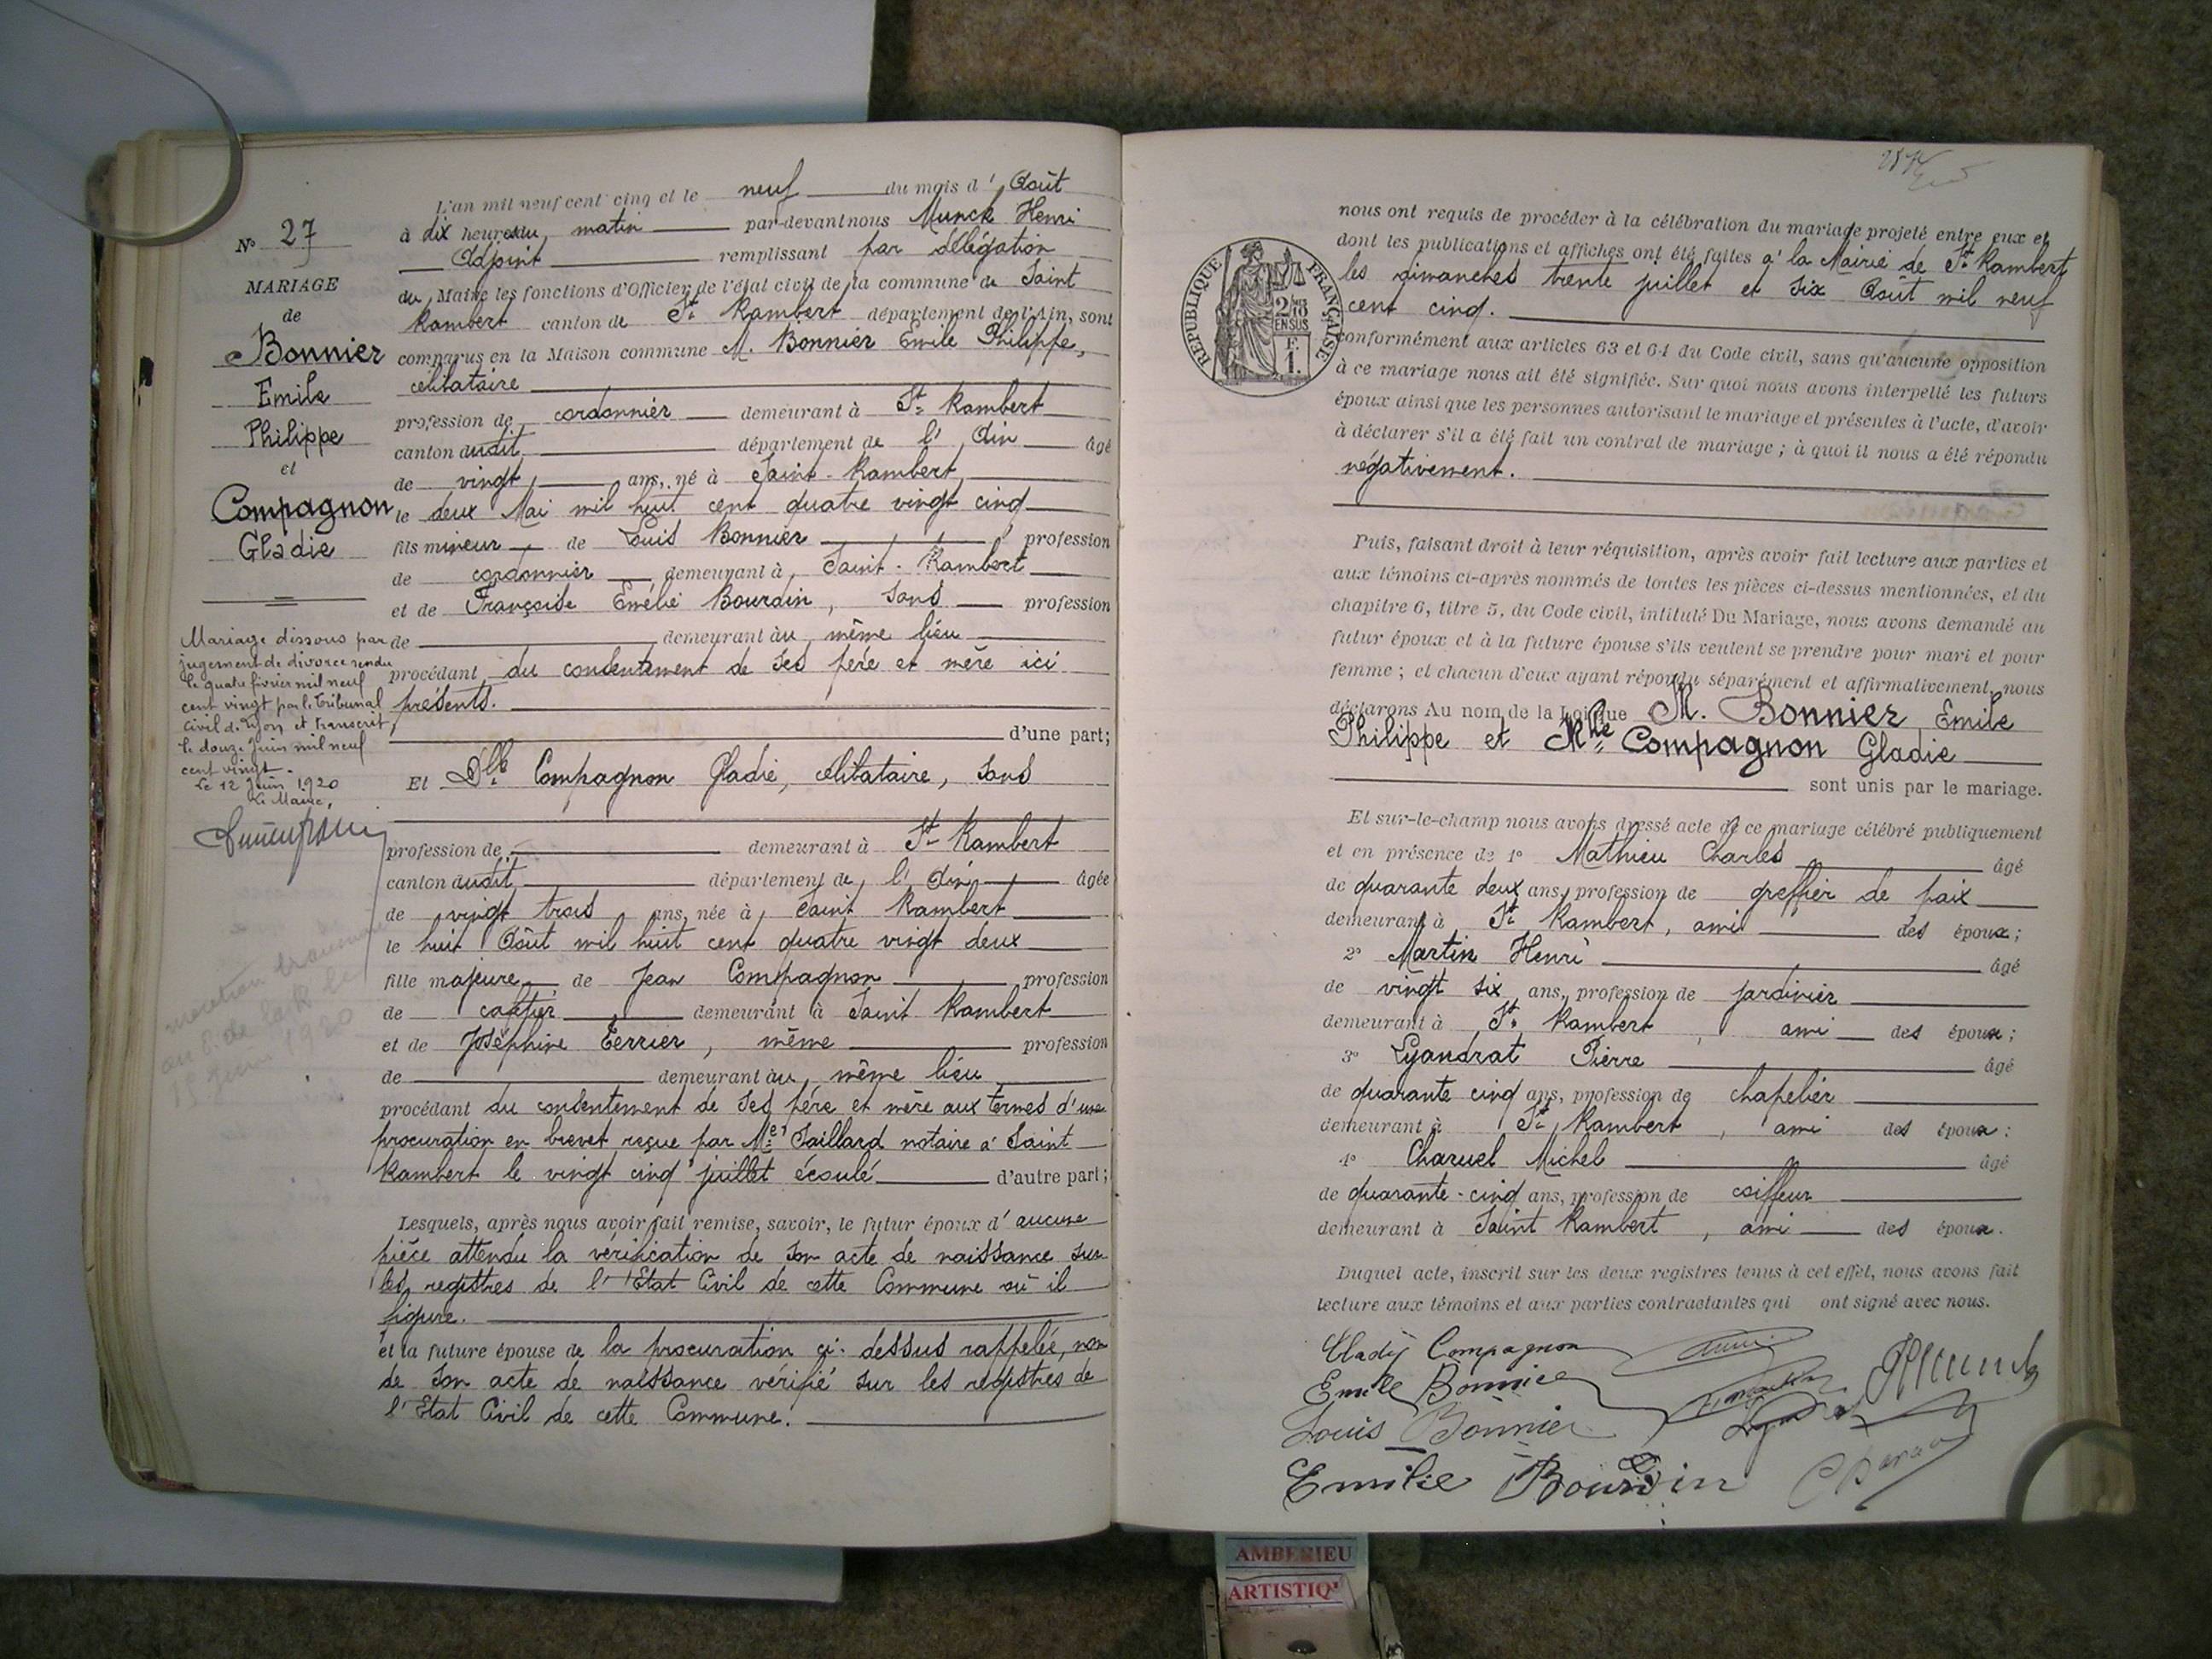 N° 27
MARIAGE
de
Bonnier
Emile
Philippe
et
Compagnon
Gladie
Mariage dissous par
jugement de divorce rendu
le quatre février mil neuf
cent vingt par le Tribunal
Civil de Lyon et transcrit
le douze Juin mil neuf
cent vingt.
Le 12 Juin 1920
Le Maire,
L'an mil neuf cent cinq et le neuf du mois d' Août
à dix heures du matin par-devant nous Munck Henri
Adjoint remplissant par délégation
du Maire les fonctions d'Officier de l'état civil de la commune de Saint
Rambert canton de St Rambert département de l'Ain, sont
comparus en la Maison commune M. Bonnier Emile Philippe,
célibataire
profession de cordonnier demeurant à St Rambert
canton dudit département de l' Ain âgé
de vingt ans, né à Saint-Rambert
le deux Mai mil huit cent quatre vingt cinq
fils mineur de Louis Bonnier profession
de cordonnier demeurant à Saint-Rambert
et de Françoise Emélie Bourdin, sans profession
de demeurant au même lieu
procédant du consentement de ses père et mère ici
présents.
d'une part;
Et Dlle Compagnon Gladie, célibataire, sans
profession de demeurant à St Rambert
canton dudit département de l' Ain âgée
de vingt trois ans, née à Saint Rambert
le huit Août mil huit cent quatre vingt deux
fille majeure de Jean Compagnon profession
de cafetier demeurant à Saint Rambert
et de Joséphine Terrier, même profession
de demeurant au même lieu
procédant du consentement de ses père et mère aux termes d'une
procuration en brevet reçue par Me Saillard notaire à Saint
Rambert le vingt cinq juillet écoulé d'autre part;
Lesquels, après nous avoir fait remise, savoir, le futur époux d' aucune
pièce attendu la vérification de son acte de naissance sur
les registres de l'Etat Civil de cette Commune où il
figure.
et la future épouse de la procuration ci-dessus rappelée, non
de son acte de naissance vérifié sur les registres de
l'Etat Civil de cette Commune.
RÉPUBLIQUE FRANÇAISE
2/10
EN SUS
F.
1.
nous ont requis de procéder à la célébration du mariage projeté entre eux et
dont les publications et affiches ont été faites à la Mairie de St Rambert
les dimanches trente juillet et six Août mil neuf
cent cinq.
conformément aux articles 63 et 64 du Code civil, sans qu'aucune opposition
à ce mariage nous ait été signifiée. Sur quoi nous avons interpellé les futurs
époux ainsi que les personnes autorisant le mariage et présentes à l'acte, d'avoir
à déclarer s'il a été fait un contrat de mariage ; à quoi il nous a été répondu
négativement.
Puis, faisant droit à leur réquisition, après avoir fait lecture aux parties et
aux témoins ci-après nommés de toutes les pièces ci-dessus mentionnées, et du
chapitre 6, titre 5, du Code civil, intitulé Du Mariage, nous avons demandé au
futur époux et à la future épouse s'ils veulent se prendre pour mari et pour
femme ; et chacun d'eux ayant répondu séparément et affirmativement, nous
déclarons Au nom de la Loi que M. Bonnier Emile
Philippe et Mlle Compagnon Gladie
sont unis par le mariage.
Et sur-le-champ nous avons dressé acte de ce mariage célébré publiquement
et en présence de 1° Mathieu Charles âgé
de quarante deux ans, profession de greffier de paix
demeurant à St Rambert, ami des époux ;
2° Martin Henri âgé
de vingt six ans, profession de jardinier
demeurant à St Rambert, ami des époux ;
3° Lyandrat Pierre âgé
de quarante cinq ans, profession de chapelier
demeurant à St Rambert, ami des époux :
4° Charuel Michel âgé
de quarante-cinq ans, profession de coiffeur
demeurant à Saint Rambert, ami des époux.
Duquel acte, inscrit sur les deux registres tenus à cet effet, nous avons fait
lecture aux témoins et aux parties contractantes qui ont signé avec nous.
Gladij Compagnon
Emile Bonnier
Louis Bonnier
Emilie Bourdin
AMBERIEU
ARTISTIQ'